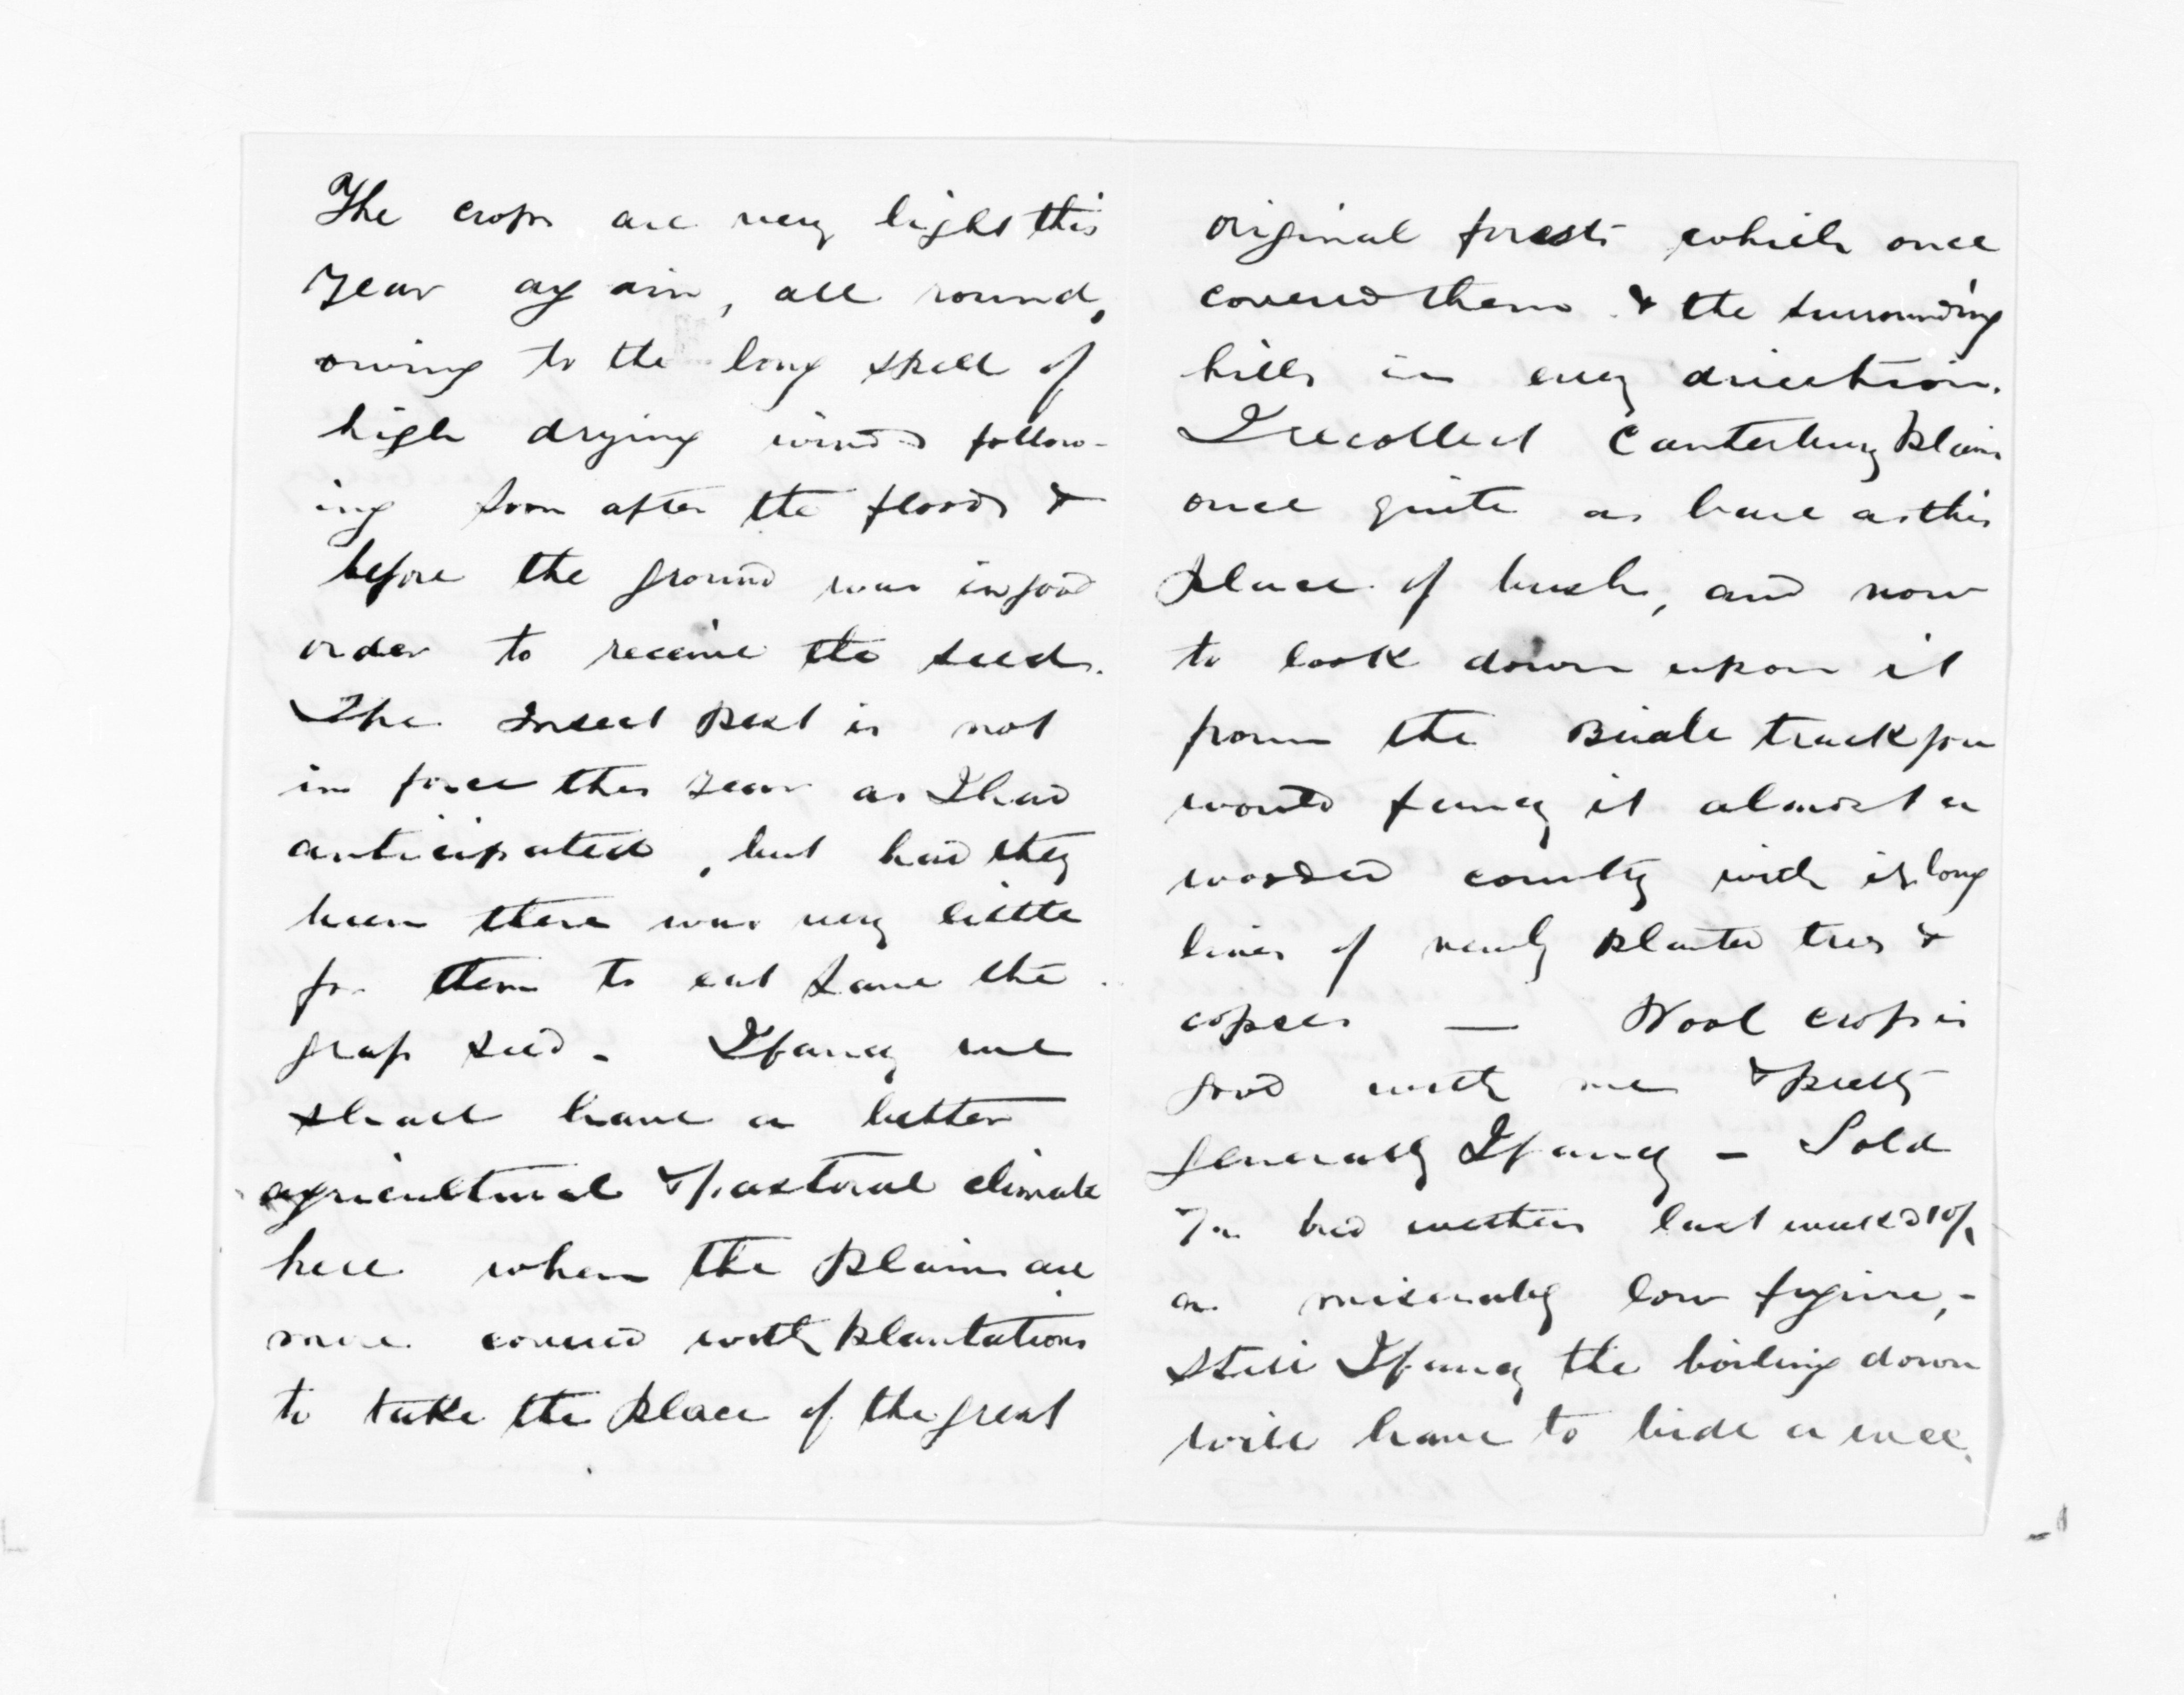 The crops are very light this
year again, all round,
owing to the long spell of
high drying winds follow-
ing soon after the floods &
before the ground was in good
order to receive the seeds.
The Insect pest is not
in force this year as I had
anticipated, but had they
been there was very little
for them to eat save the
grass seed - I fancy we
shall have a better
agricultural & pastoral climate
here when the plains are
more covered with plantations
to take the place of the great
original forests which once
covered them & the surrounding
hills in every direction.
I recollect Canterbury Plains
once quite as bare as this
place of bush, and now
to look down upon it
from the Bridle track you
would fancy it almost a
wooded country with its long
lines of newly planted trees &
copses — Wool crop is
good with me & pretty
generally I fancy - Sold
700 wethers last week @ 10/
a miserably low figure, -
Still I fancy the boiling down
will have to bide a wee.